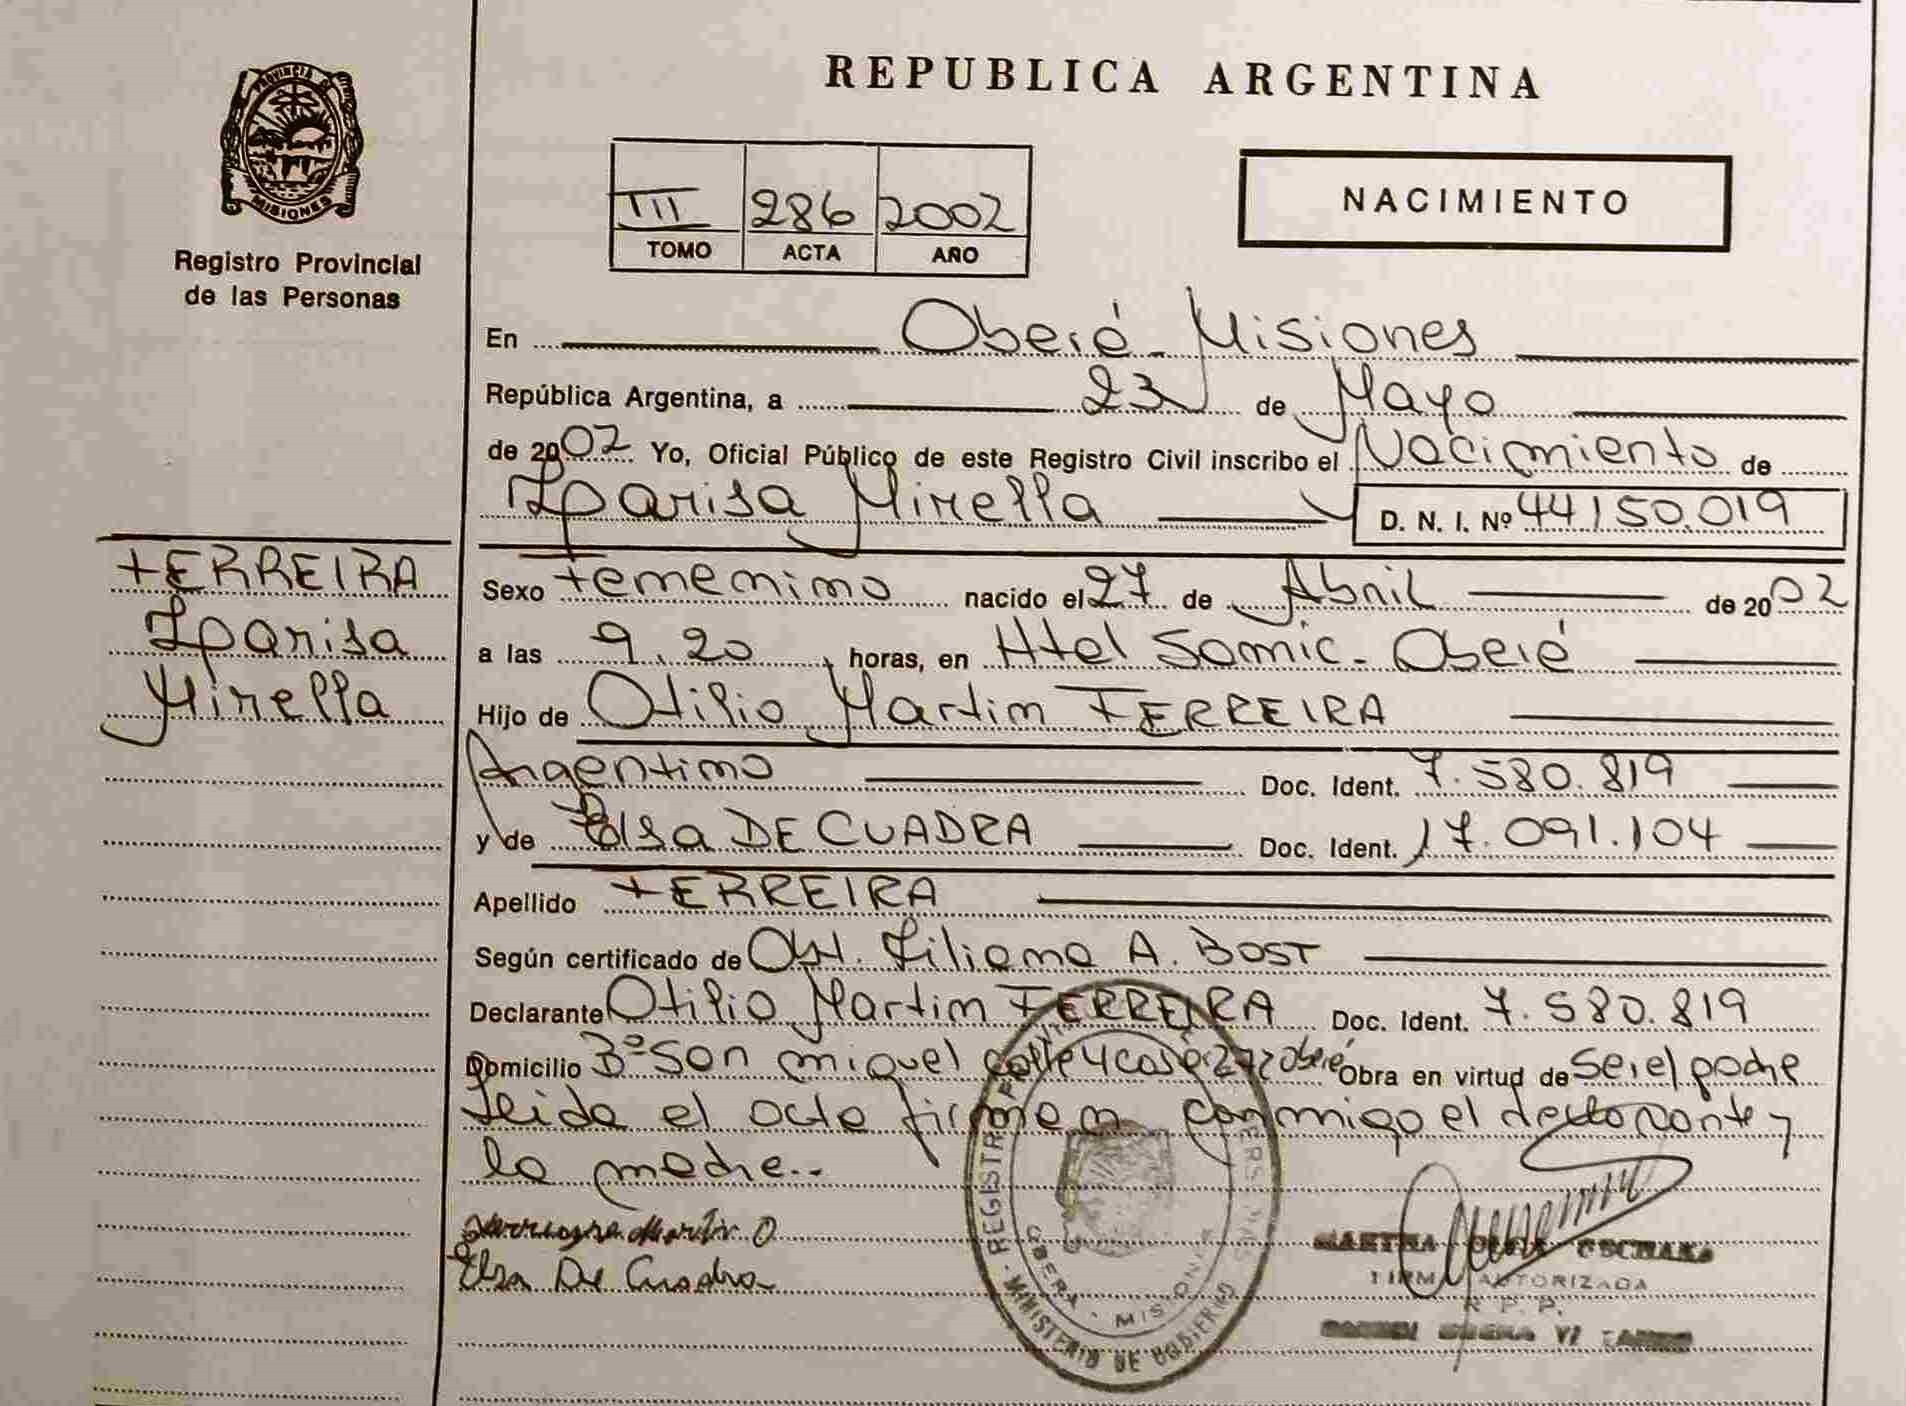 PROVINCIA DE
MISIONES
Registro Provincial
de las Personas
REPUBLICA ARGENTINA
III 286 2002
TOMO ACTA AÑO
NACIMIENTO
En Oberá - Misiones
República Argentina, a 23 de Mayo
de 2002 Yo, Oficial Público de este Registro Civil inscribo el Nacimiento de
Larisa Mirella D. N. I. Nº 44150.019
FERREIRA
Larisa
Mirella
Sexo Femenino nacido el 27 de Abril de 2002
a las 9.20 horas, en Htal Samic - Oberá
Hijo de Otilio Martin FERREIRA
Argentino Doc. Ident. 7.580.819
y de Elsa DE CUADRA Doc. Ident. 17.091.104
Apellido FERREIRA
Según certificado de Obst. Liliana A. BOST
Declarante Otilio Martin FERREIRA Doc. Ident. 7.580.819
Domicilio Bº San Miguel calle 4 casa 272 Oberá Obra en virtud de Ser el padre
Leida el acta firman conmigo el declarante y
la madre..
Martin O
Elsa De Cuadra
MARTHA
FIRMA AUTORIZADA
R. P. P.
REGISTRO
OBERA - MISIONES
MINISTERIO DE GOBIERNO